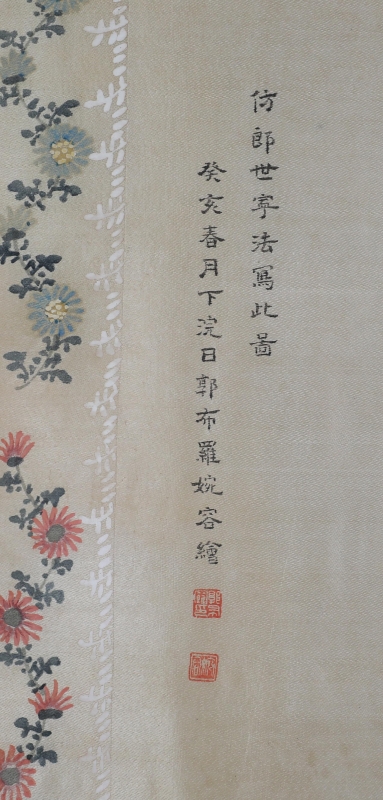 仿郎世寧法寫此啚
癸亥春月下浣日郭布羅婉容繪